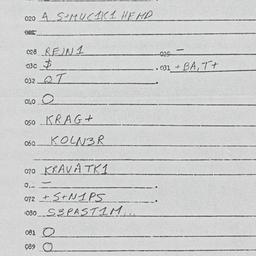 020 A S+MUC1K1 HFMD
028 REJN1 029 –
030 $ . 031 +BA,T+
032 QT .
040 O
050 KRAG+
060 KOLN3R
070 KRAVATK1
– .
072 +S+N1PS .
080 S3PAST1M...
081 O
089 O